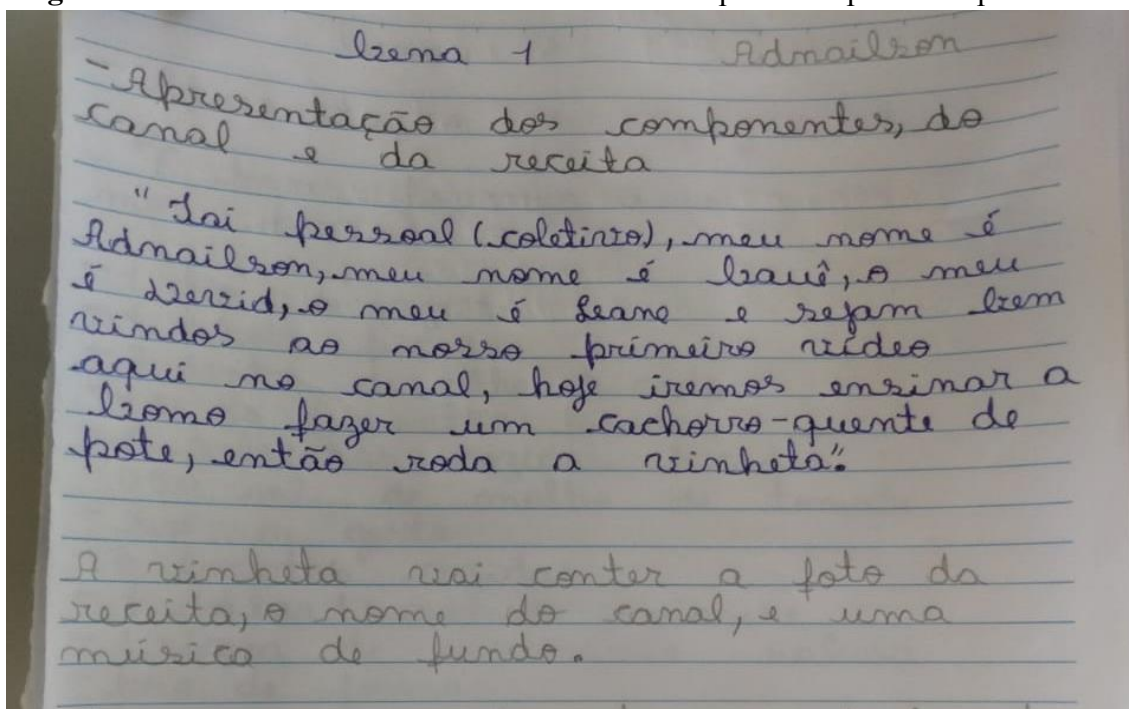 Cena 1 Admailson
- Apresentação dos componentes, do
canal e da receita
"Iai pessoal (coletivo), meu nome é
Admailson, meu nome é Cauê, o meu
é Dervid, o meu é Leane e sejam bem
vindos ao nosso primeiro vídeo
aqui no canal, hoje iremos ensinar a
Como fazer um cachorro-quente de
pote, então roda a vinheta".
A vinheta vai conter a foto da
receita, o nome do canal, e uma
música de fundo.